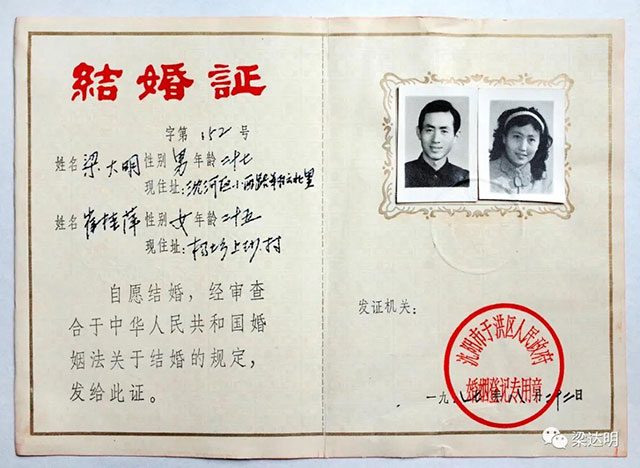 結婚証
字第 152 号
姓名 梁大明 性别 男 年龄 二十七
现住址: 沈河区小西路
姓名 崔桂萍 性别 女 年龄 二十五
现住址:
自愿结婚，经审查
合于中华人民共和国婚
姻法关于结婚的规定，
发给此证。
发证机关:
沈阳市于洪区人民政府
婚姻登记专用章
一九八 年 月二十二日
梁达明